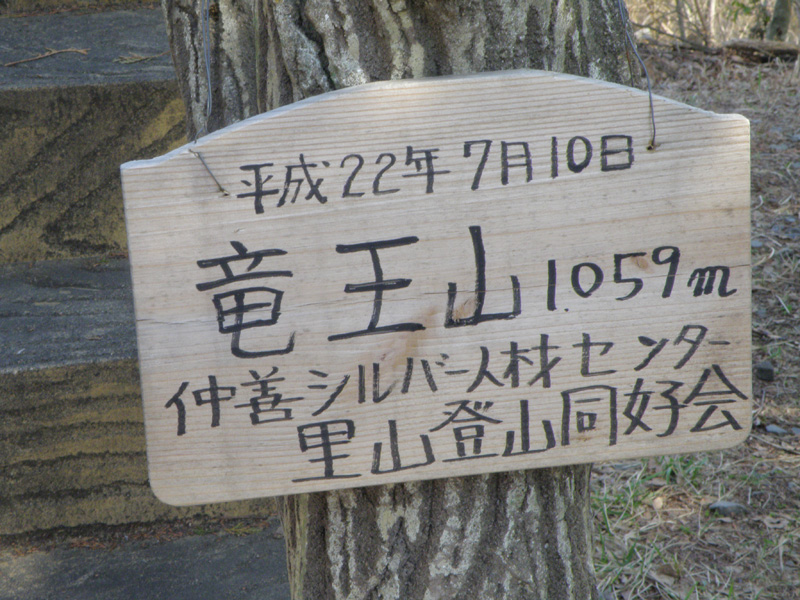 平成22年7月10日
竜王山 1.059m
仲善シルバー人材センター
里山登山同好会